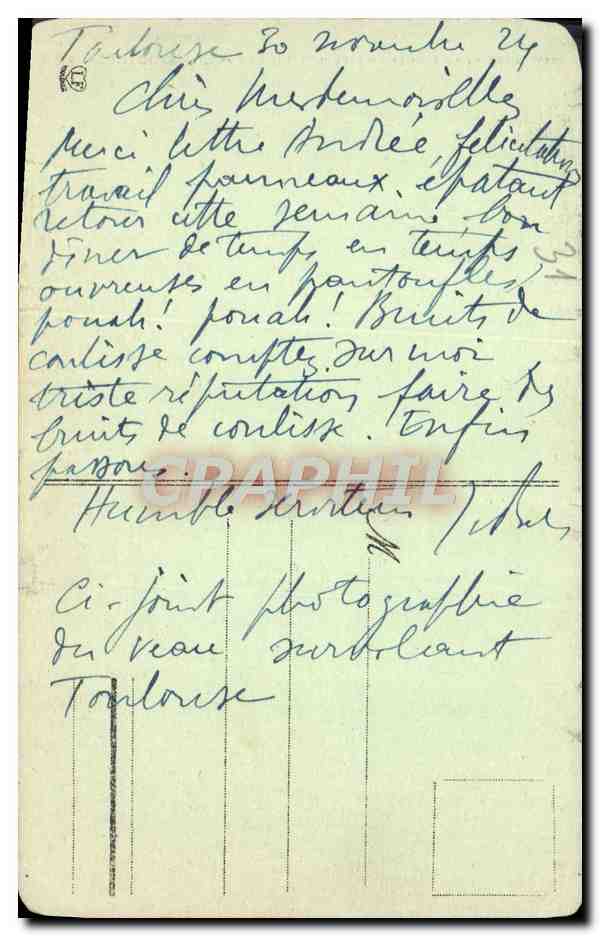 Toulouse 30 novembre 24
LF
Chères Mesdemoiselles
Merci lettre Andrée, félicitations
travail panneaux. épatant
retour cette semaine, bon
dîner de temps en temps,
ouvreuses en pantoufles
pouah! pouah! Bruits de
coulisse comptez sur moi
triste réputation faire des
bruits de coulisse. Enfin
passons.
CPAPHIL.COM
Humble serviteur
M
Ci-joint photographie
du veau survolant
Toulouse
31